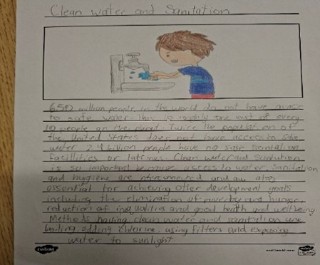 Clean water and Sanitation
650 million people in the world do not have access
to safe water. This is roughly one out of every
10 people on the planet. Twice the population of
the United States does not have access to clean
water. 2.4 billion people have no safe
facilities or latrines. Clean water and sanitation
is so important because access to water, sanitation
and hygiene
essential for achieving other development goals
including the elimination of poverty and hunger
reduction of inequalities and good health and well being
Methods having clean water and sanitation are
boiling, adding chlorine, using filters and exposing
water to sunlight